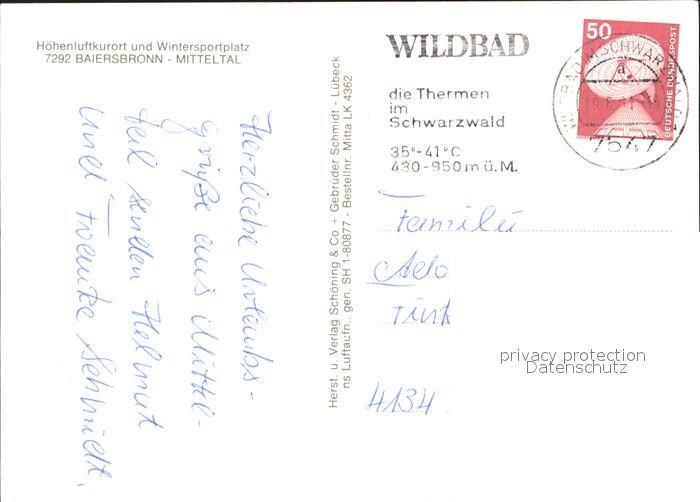 Höhenluftkurort und Wintersportplatz
7292 BAIERSBRONN - MITTELTAL
Herzliche Urlaubs-
grüße aus Mittel-
teil senden Helmut
und Frauke Schmidt.
Herst. u. Verlag Schöning & Co + Gebrüder Schmidt - Lübeck
ns Luftaufn., gen. SH 1-80877 - Bestellnr. Mitta LK 4362
WILDBAD
die Thermen
im
Schwarzwald
35°-41°C
430-950m ü.M.
50
DEUTSCHE BUNDESPOST
WILDBAD IM SCHWARZW
a
7547
Familie
4134
privacy protection
Datenschutz